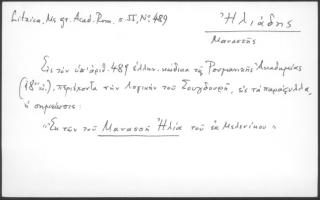 Litzica, Ms gr. Acad. Rom. σ. 55, Nº 489
Ἠλιάδης
Μανασσῆς
Εἰς τὸν ὑπ' ἀριθ. 489 ἑλλην. κώδικα τῆς Ρουμανικῆς Ἀκαδημείας
(18ου αἰ.), περιέχοντα τὴν Λογικὴν τοῦ Σουγδουρῆ, εἰς τὰ παράφυλλα,
ἡ σημείωσις:
"Ἐκ τῶν τοῦ Μανασσῆ Ἠλία τοῦ ἐκ Μελενίκου"